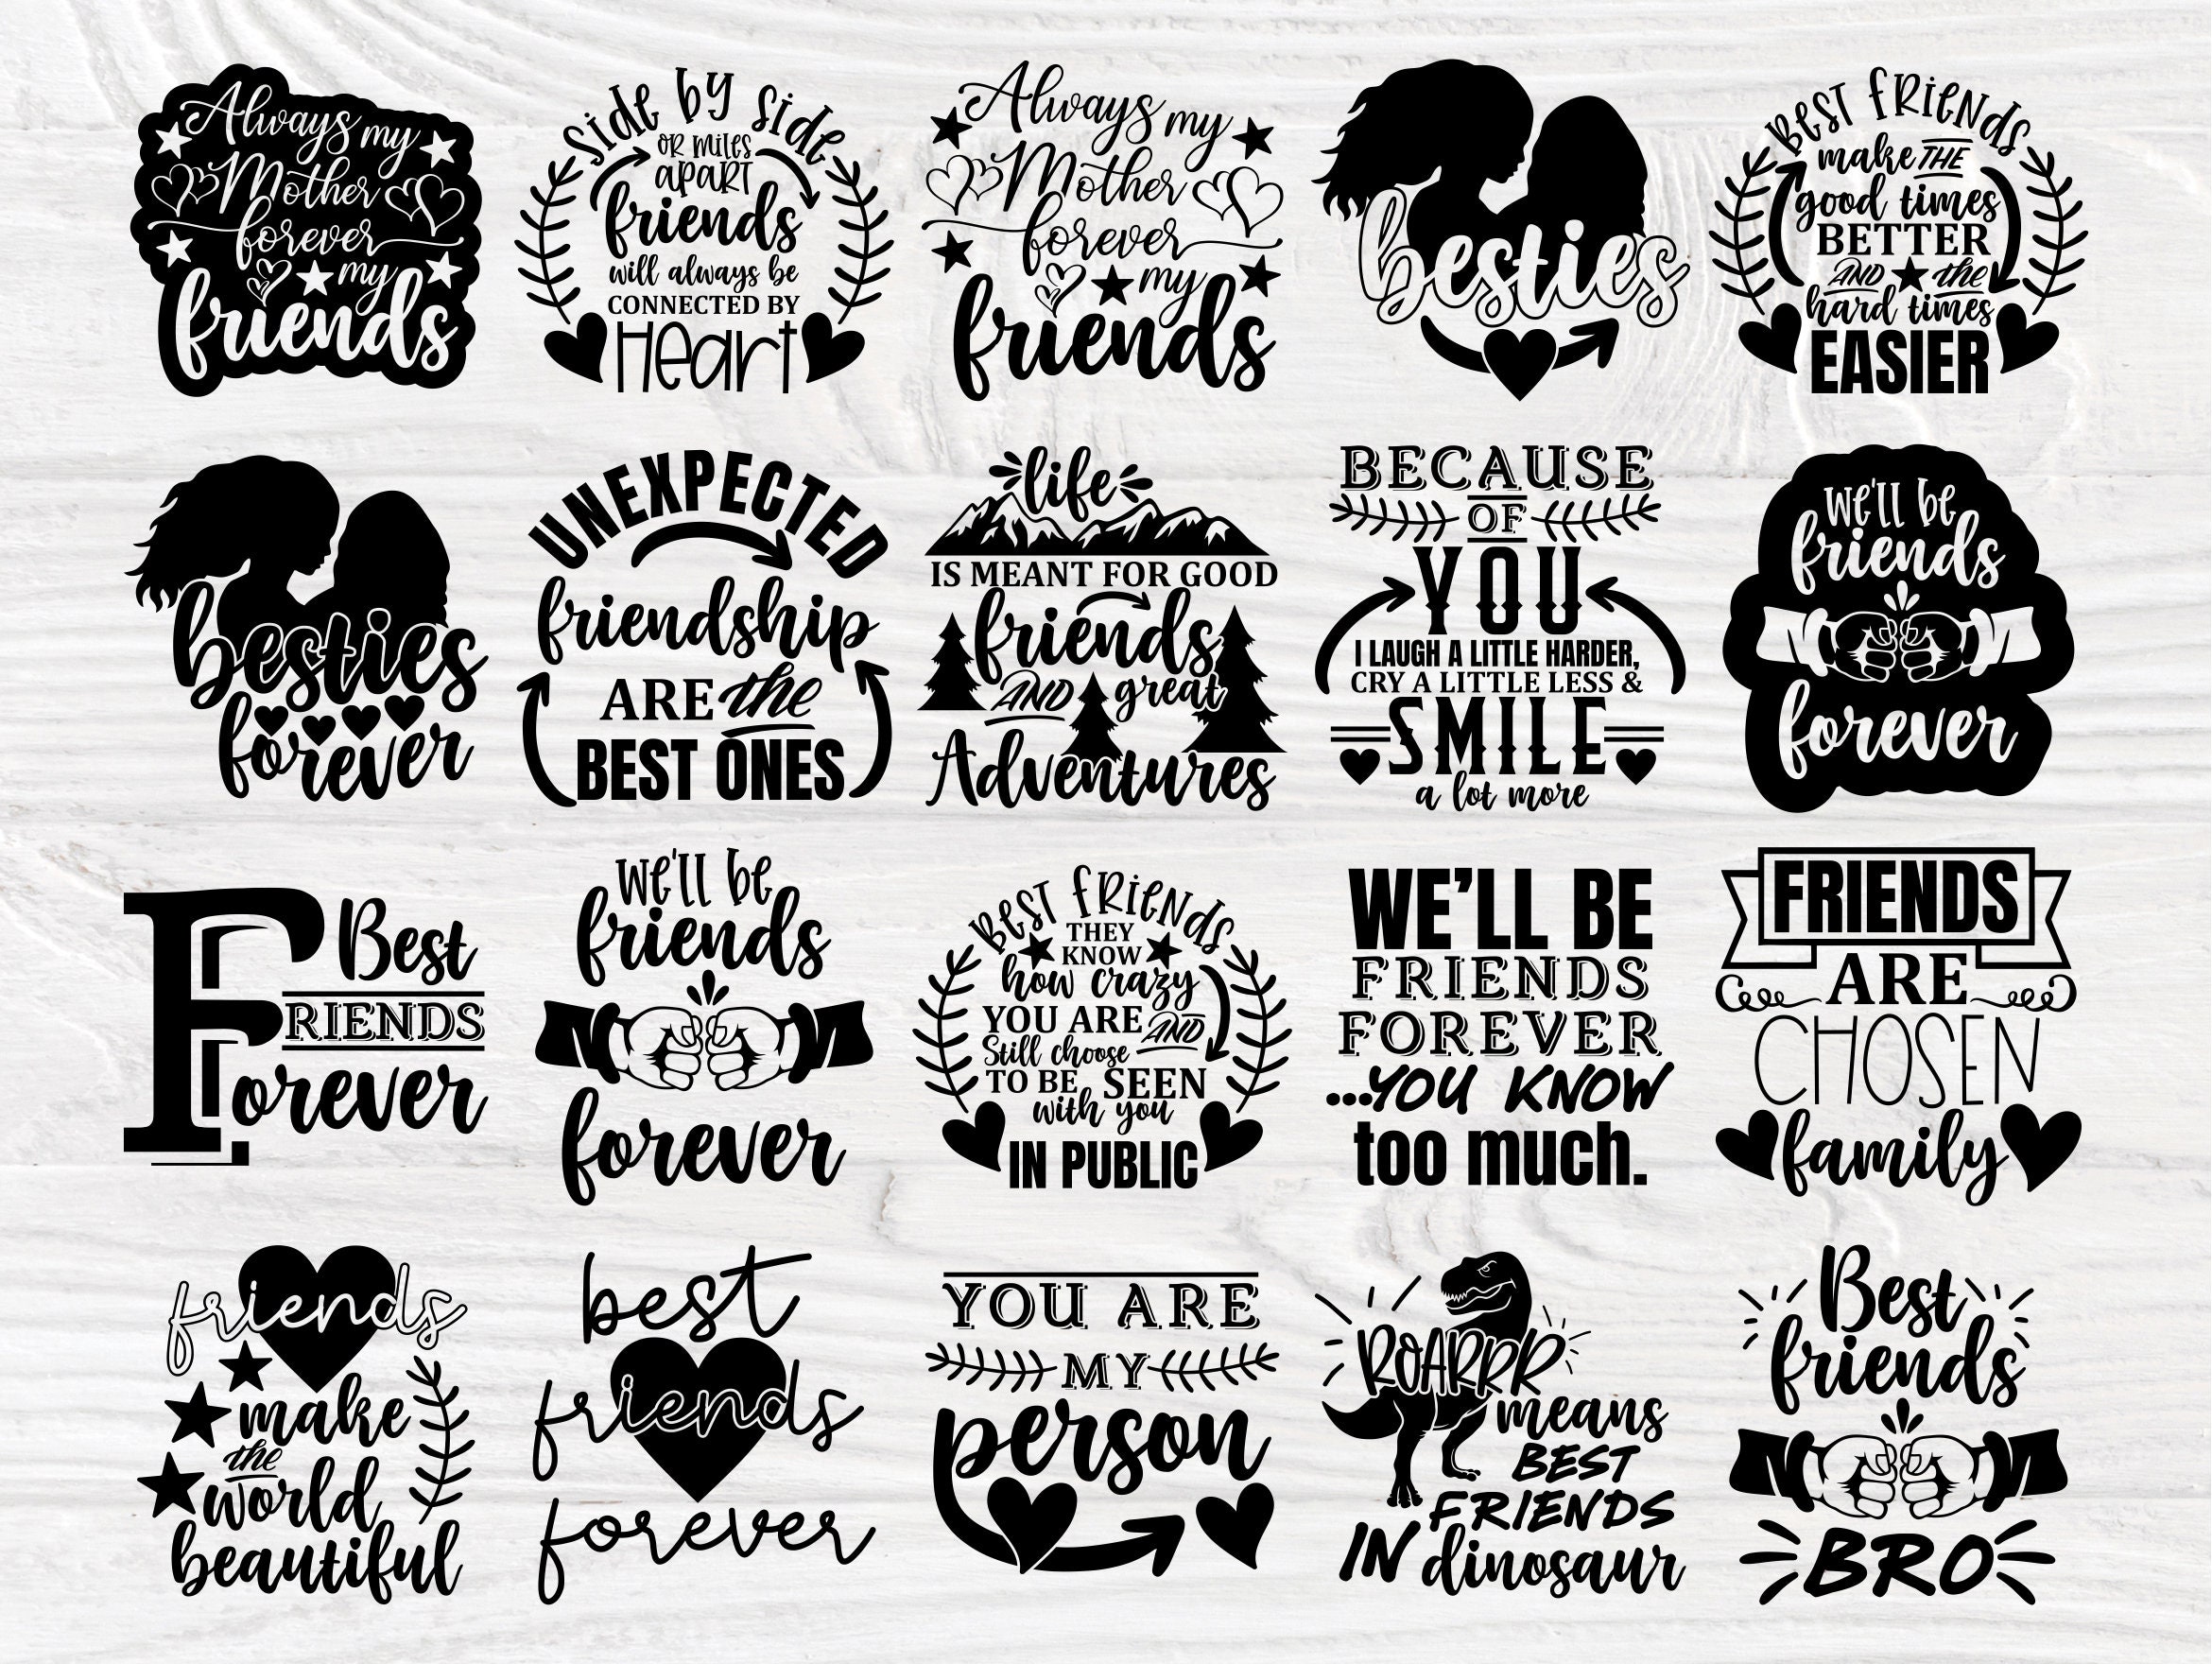 Always my
Mother
forever
my
friends
Side by side
OR miles
apart
friends
will always be
CONNECTED BY
Heart
Always my
Mother
forever
my
friends
besties
Best Friends
make THE
good times
BETTER
AND the
hard times
EASIER
besties
forever
UNEXPECTED
friendship
ARE the
BEST ONES
life
IS MEANT FOR GOOD
friends
AND great
Adventures
BECAUSE
OF
YOU
I LAUGH A LITTLE HARDER,
CRY A LITTLE LESS &
SMILE
a lot more
we'll be
friends
forever
Best
FRIENDS
Forever
we'll be
friends
forever
Best Friends
THEY
KNOW
how crazy
YOU ARE AND
Still choose
TO BE SEEN
with you
IN PUBLIC
WE'LL BE
FRIENDS
FOREVER
...YOU KNOW
too much.
FRIENDS
ARE
CHOSEN
family
friends
make
the
world
beautiful
best
friends
forever
YOU ARE
MY
person
ROARRR
means
BEST
FRIENDS
IN dinosaur
Best
friends
BRO